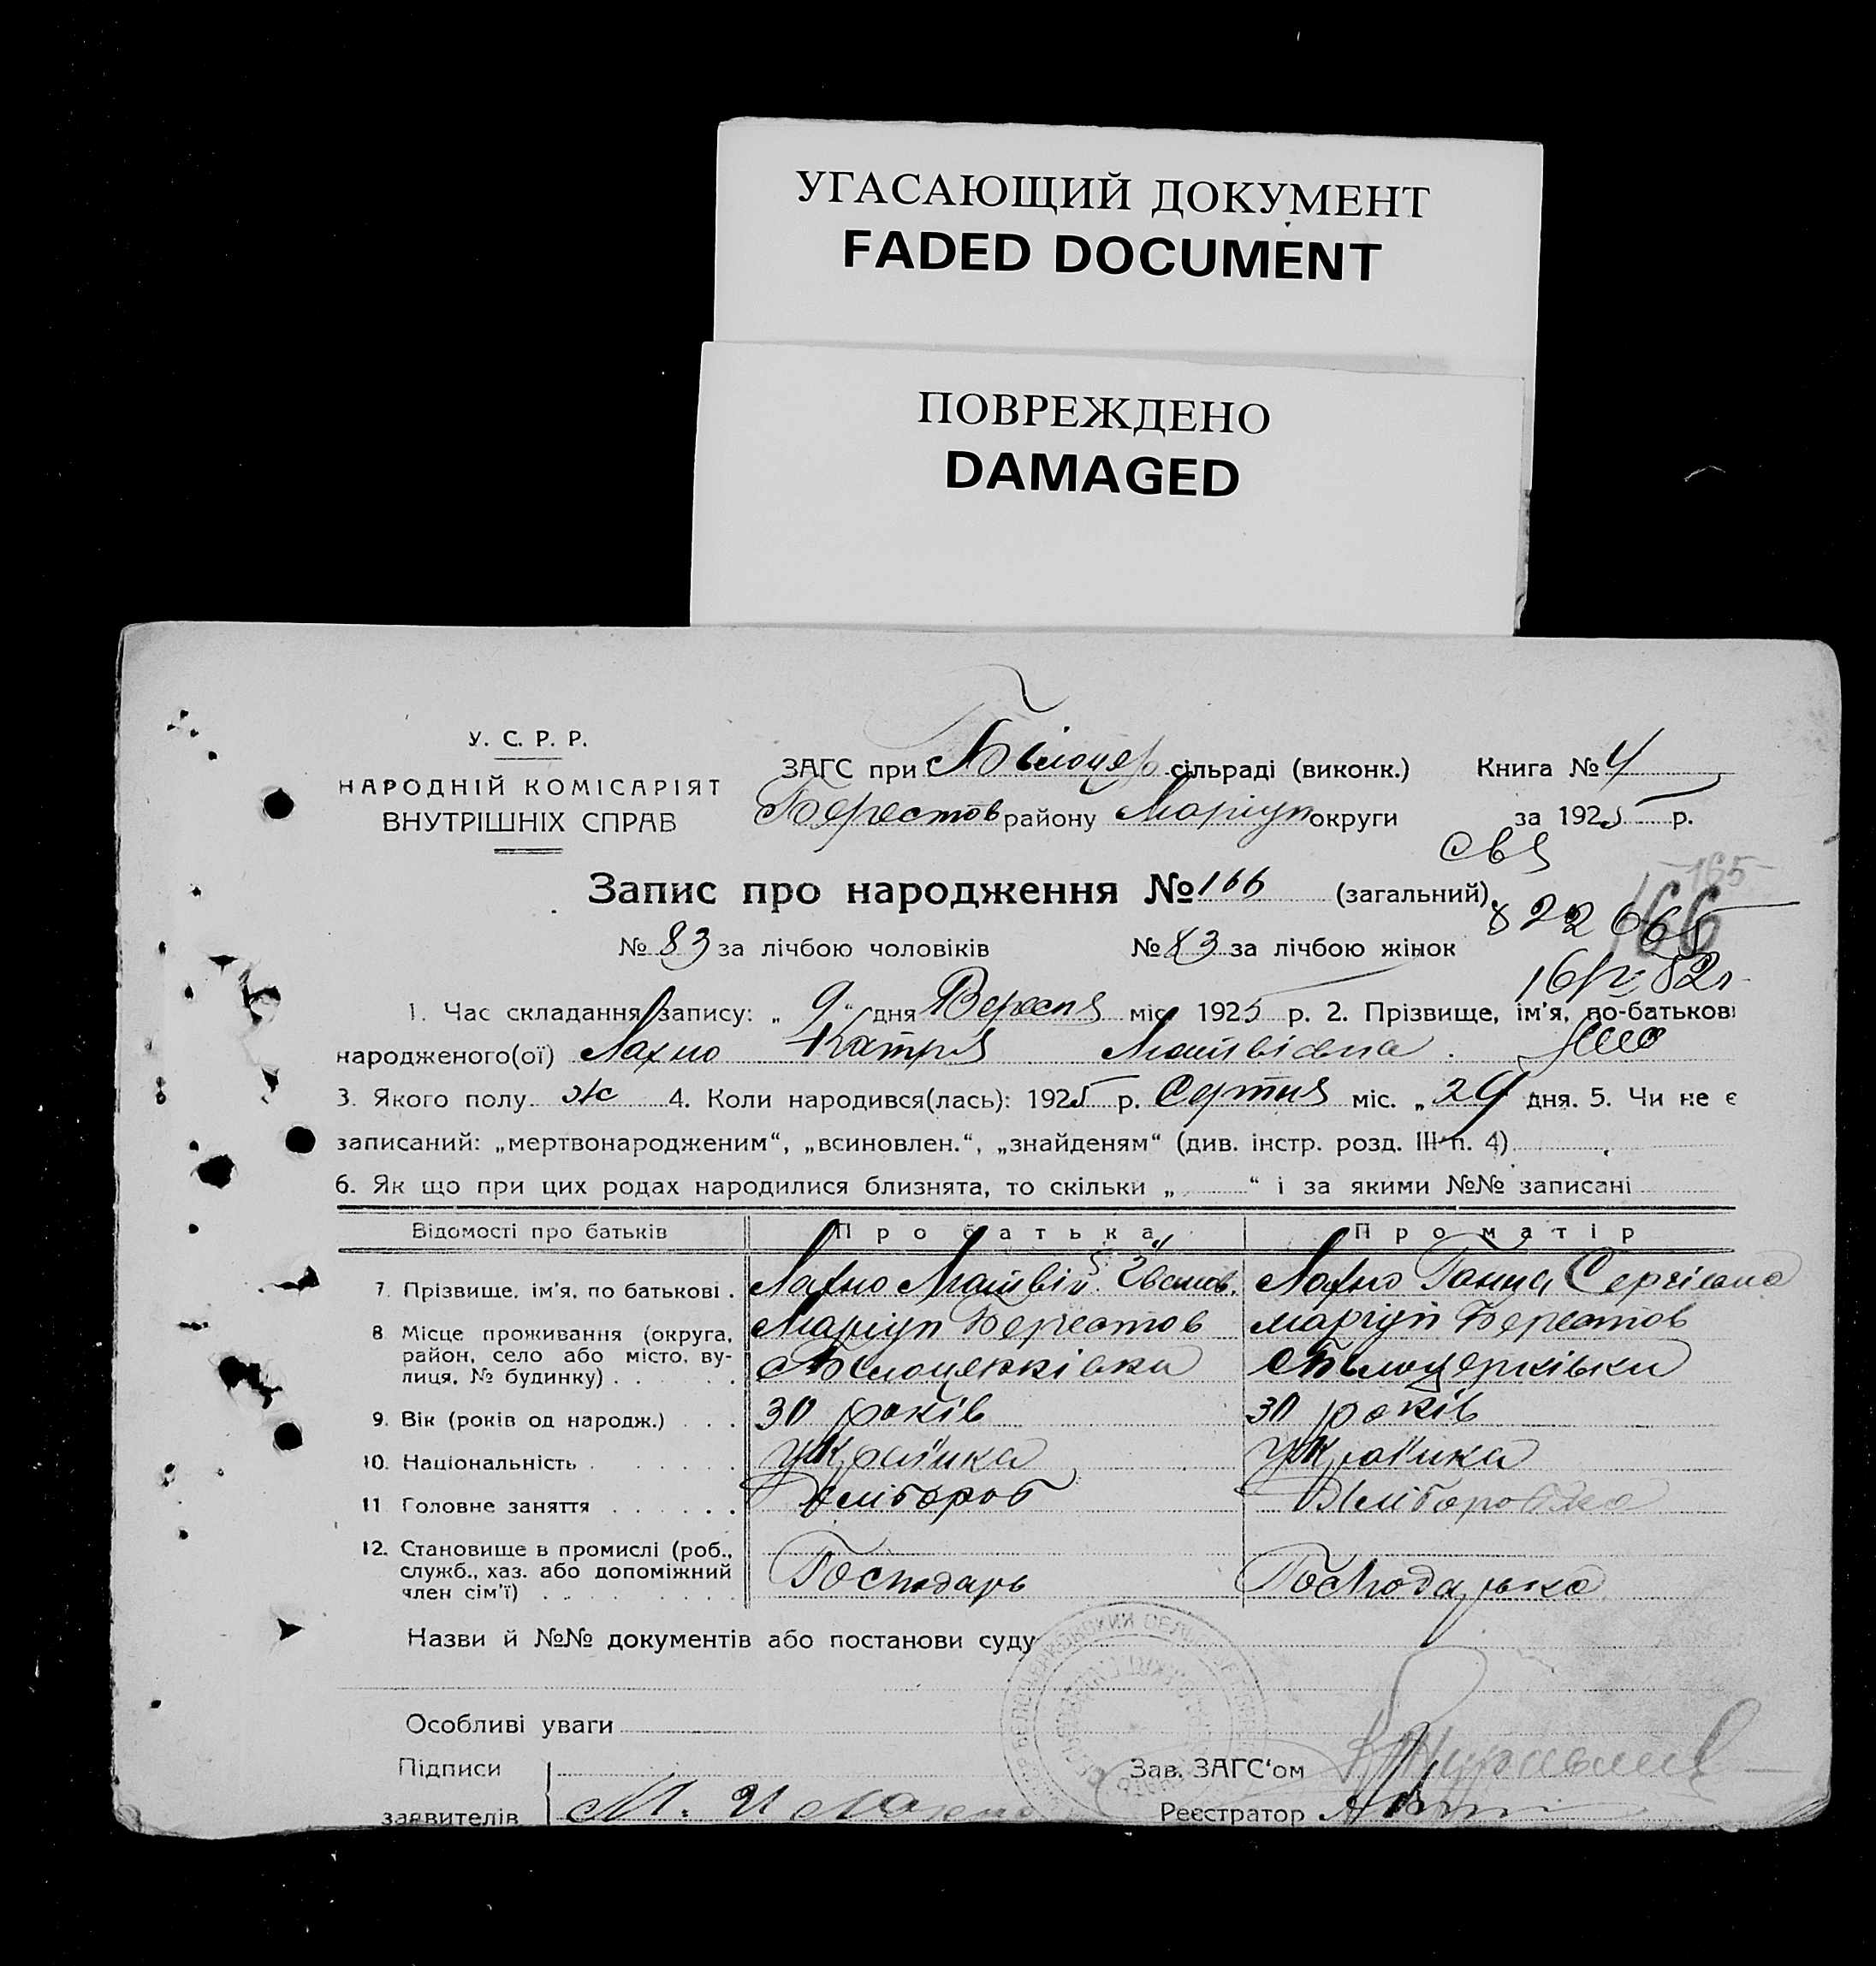 УГАСАЮЩИЙ ДОКУМЕНТ
FADED DOCUMENT
ПОВРЕЖДЕНО
DAMAGED
У. С. Р. Р.
НАРОДНІЙ КОМІСАРІЯТ
ВНУТРІШНІХ СПРАВ
ЗАГС при Білоцер сільраді (виконк.) Книга № 4
Берестов району Маріуп округи за 1925 р.
Запис про народження № 166 (загальний)
165
166
№ 83 за лічбою чоловіків № 83 за лічбою жінок
1. Час складання запису: „ 9 “ дня Вересня міс. 1925 р. 2. Прізвище, ім'я, по-батькові
народженого(ої) Лахно Катря Матвівна
3. Якого полу ж 4. Коли народився(лась): 1925 р. Серпня міс. „ 29 дня. 5. Чи не є
записаний: „мертвонародженим“, „всиновлен.“, „знайденям“ (див. інстр. розд. III п. 4)
6. Як що при цих родах народилися близнята, то скільки „ “ і за якими №№ записані
Відомості про батьків Про батька Про матір
7. Прізвище, ім'я, по батькові . Лахно Матвій Іванов. Лахно Ганна Сергіевна
8 Місце проживання (округа, район, село або місто, ву- лиця, № будинку) . . . . . . Маріуп Берестов Білоцерківка маріуп Берестов Білоцерківки
9. Вік (років од народж.) . . . 30 років 30 років
10. Національність . . . . . . . Україика Україика
11 Головне заняття . . . . . . Хлібороб Хліборобка
12. Становище в промислі (роб., служб., хаз. або допоміжний член сім'ї) . . . . . . . . . Господарь Господарька
Назви й №№ документів або постанови суду
Особливі уваги
Підписи
Зав. ЗАГС‘ом
заявителів М. И Лахно Реєстратор